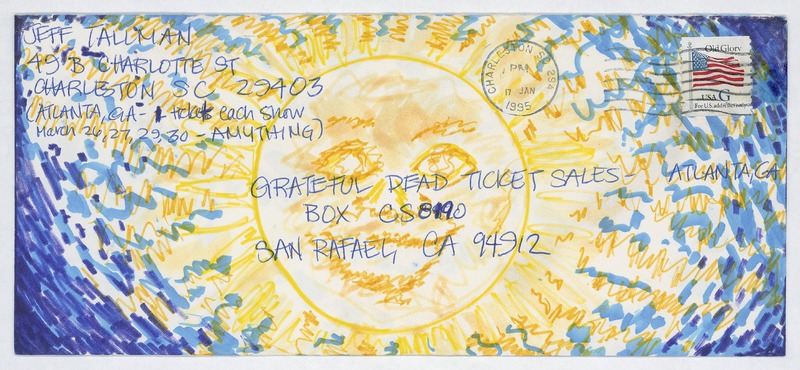 JEFF TALLMAN
49 B CHARLOTTE ST
CHARLESTON SC 29403
(ATLANTA, GA - 1 ticket each show
March 26, 27, 29, 30 - ANYTHING)
CHARLESTON SC 294
PM
17 JAN
1995
Old Glory
USA G
For U.S. addresses only
GRATEFUL DEAD TICKET SALES - ATLANTA, CA
BOX CS8190
SAN RAFAEL, CA 94912